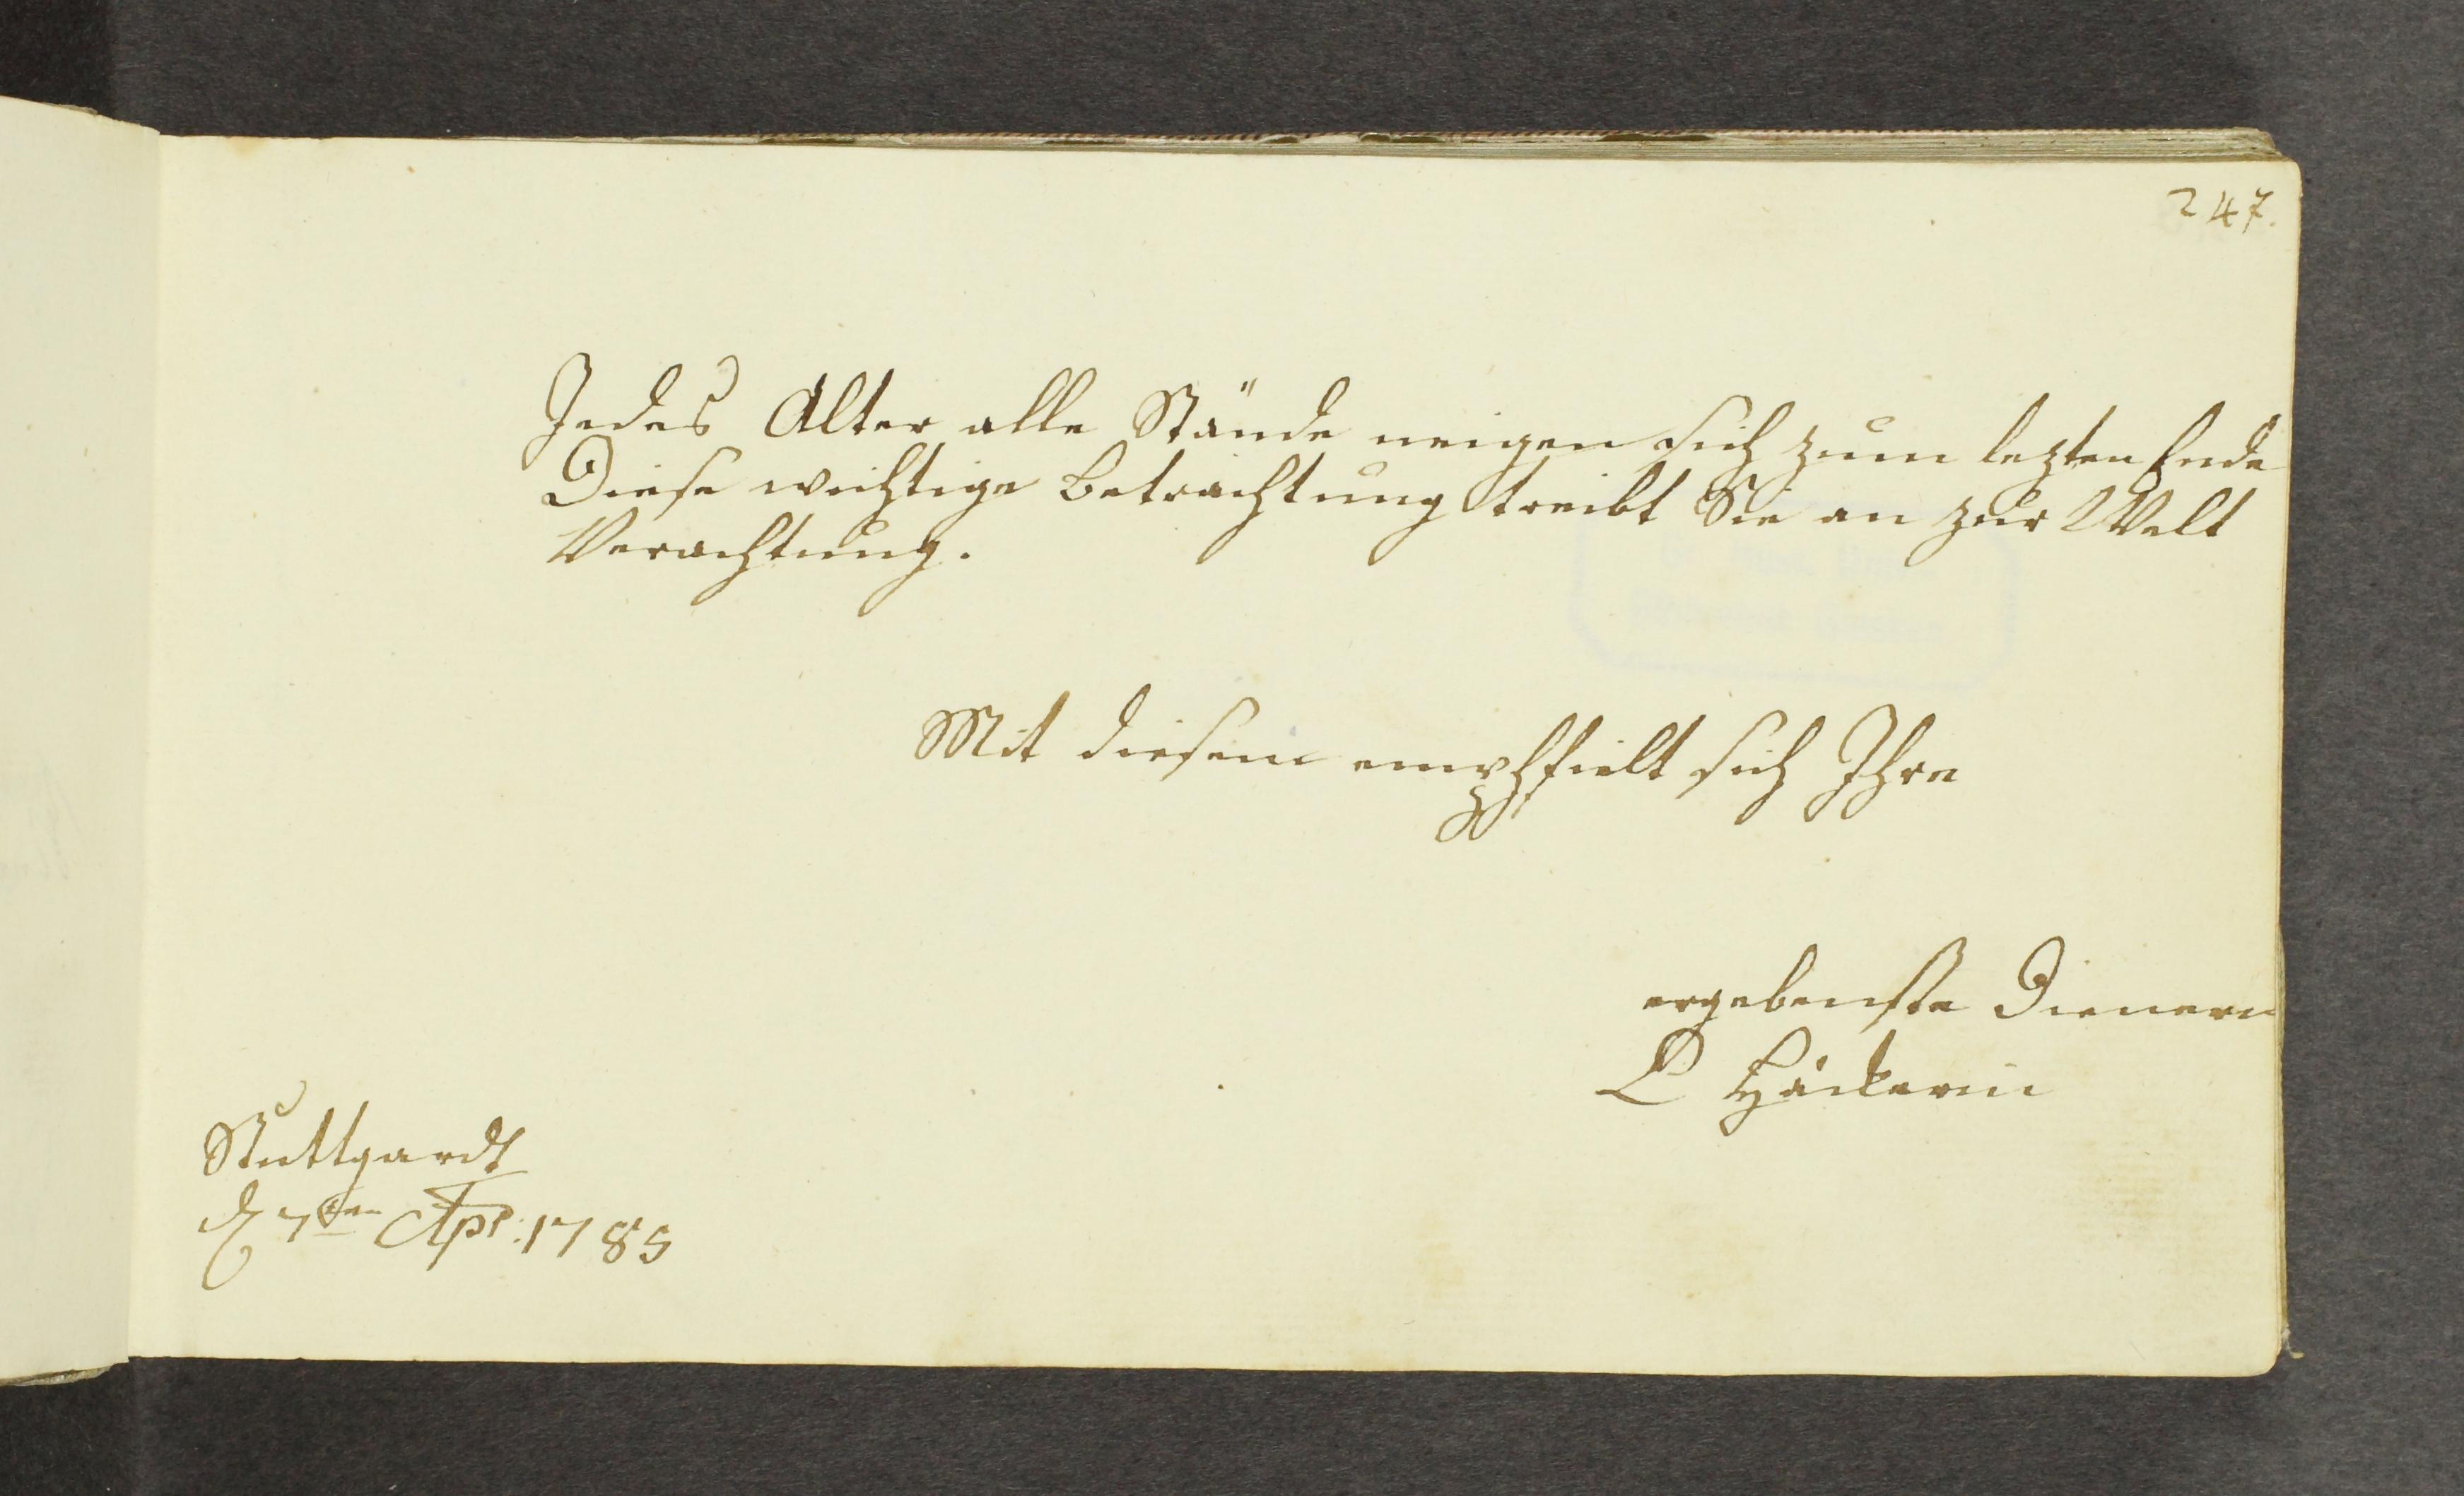 247.
Jedes Alter alle Stände neigen sich zum lezten Ende
Diese wichtige Betrachtung treibt Sie an zur Welt
Verachtung.
Mit diesem empfhfielt sich Ihre
ergebenste Dienerin
C Häckerin
Stuttgardt
d 7ten Apr: 1785